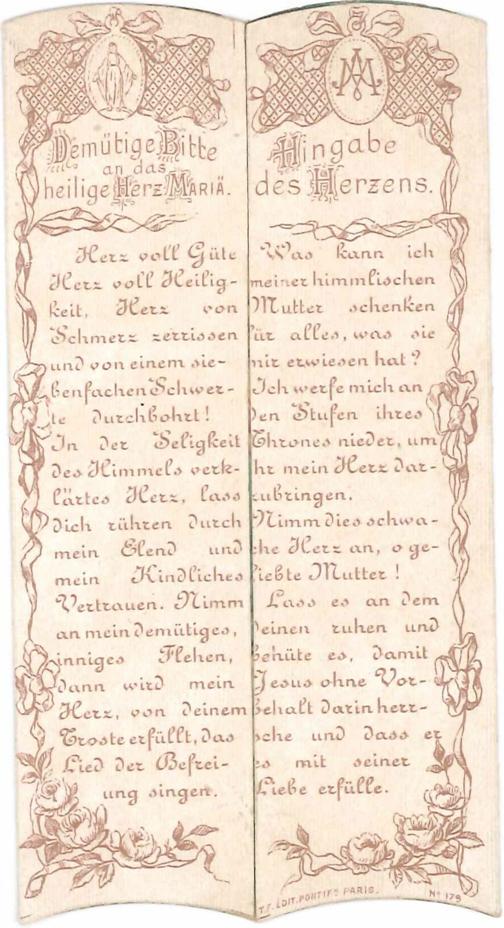 Demütige Bitte
an das
heilige Herz Mariä.
Herz voll Güte
Herz voll Heilig-
keit, Herz von
Schmerz zerrissen
und von einem sie-
benfachen Schwer-
te durchbohrt!
In der Seligkeit
des Himmels verk-
lärtes Herz, lass
dich rühren durch
mein Elend und
mein Kindliches
Vertrauen. Nimm
an mein demütiges,
inniges Flehen,
dann wird mein
Herz, von deinem
Troste erfüllt, das
Lied der Befrei-
ung singen.
Hingabe
des Herzens.
Was kann ich
meiner himmlischen
Mutter schenken
für alles, was sie
mir erwiesen hat?
Ich werfe mich an
den Stufen ihres
Thrones nieder, um
ihr mein Herz dar-
zubringen.
Nimm dies schwa-
che Herz an, o ge-
liebte Mutter!
Lass es an dem
deinen ruhen und
behüte es, damit
Jesus ohne Vor-
behalt darin herr-
sche und dass er
es mit seiner
Liebe erfülle.
EDIT. PONTIFS PARIS.
No 179